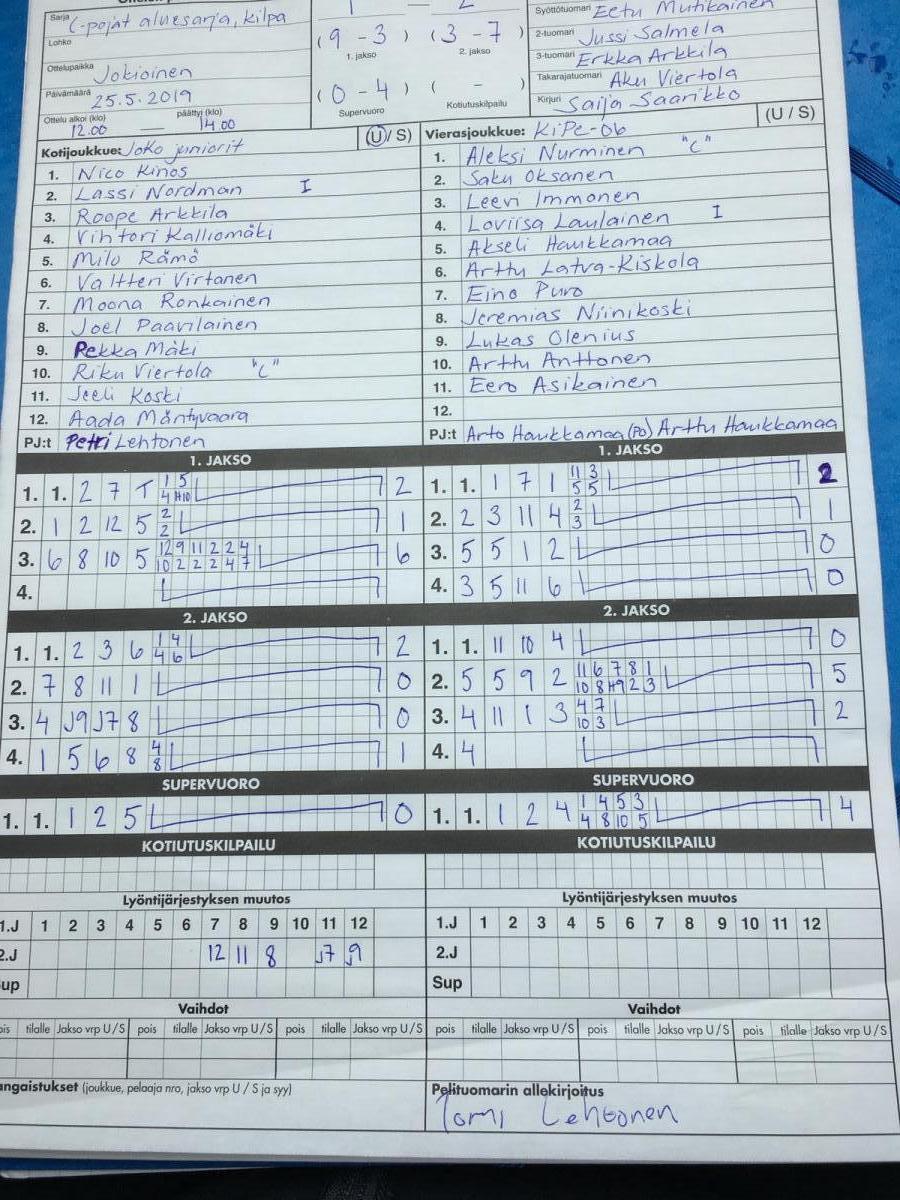 Sarja C-pojat aluesarja, kilpa
Lohko
Ottelupaikka Jokioinen
Päivämäärä 25.5.2019
Ottelu alkoi (klo) päättyi (klo)
12.00 — 14.00
1 — 2
(9 - 3) (3 - 7)
1. jakso 2. jakso
(0 - 4) ( - )
Supervuoro Kotiutuskilpailu
Syöttötuomari Eetu Mutikainen
2-tuomari Jussi Salmela
3-tuomari Erkka Arkkila
Takarajatuomari Aku Viertola
Kirjuri Saija Saarikko
Kotijoukkue: JoKo juniorit (U / S)
1. Nico Kinos
2. Lassi Nordman I
3. Roope Arkkila
4. Vihtori Kalliomäki
5. Milo Rämö
6. Valtteri Virtanen
7. Moona Ronkainen
8. Joel Paavilainen
9. Pekka Mäki
10. Riku Viertola "C"
11. Jeeli Koski
12. Aada Mäntyvaara
PJ:t Petri Lehtonen
Vierasjoukkue: KiPe-06 (U / S)
1. Aleksi Nurminen "C"
2. Saku Oksanen
3. Leevi Immonen
4. Loviisa Laulainen I
5. Akseli Haukkamaa
6. Arttu Latva-Kiskola
7. Eino Puro
8. Jeremias Niinikoski
9. Lukas Olenius
10. Arttu Anttonen
11. Eero Asikainen
12.
PJ:t Arto Haukkamaa (PO) Arttu Haukkamaa
1. JAKSO
1. 1. 2 7 T 1 5 2
4 H10
2. 1 2 12 5 2 1
2
3. 6 8 10 5 12 9 11 2 2 4 6
10 2 2 2 4 7
4.
2. JAKSO
1. 1. 2 3 6 1 4 2
4 6
2. 7 8 11 1 0
3. 4 J9 J7 8 0
4. 1 5 6 8 4 1
8
SUPERVUORO
1. 1. 1 2 5 0
KOTIUTUSKILPAILU
Lyöntijärjestyksen muutos
1.J 1 2 3 4 5 6 7 8 9 10 11 12
2.J 12 11 8 J7 J9
Sup
Vaihdot
pois tilalle Jakso vrp U / S pois tilalle Jakso vrp U / S pois tilalle Jakso vrp U / S
angaistukset (joukkue, pelaaja nro, jakso vrp U / S ja syy)
1. JAKSO
1. 1. 1 7 1 11 3 2
5 5
2. 2 3 11 4 2 1
3
3. 5 5 1 2 0
4. 3 5 11 6 0
2. JAKSO
1. 1. 11 10 4 0
2. 5 5 9 2 11 6 7 8 1 5
10 8 H9 2 3
3. 4 11 1 3 4 7 2
10 3
4. 4
SUPERVUORO
1. 1. 1 2 4 1 4 5 3 4
4 8 10 5
KOTIUTUSKILPAILU
Lyöntijärjestyksen muutos
1.J 1 2 3 4 5 6 7 8 9 10 11 12
2.J
Sup
Vaihdot
pois tilalle Jakso vrp U / S pois tilalle Jakso vrp U / S pois tilalle Jakso vrp U / S
Pelituomarin allekirjoitus
Tomi Lehtonen